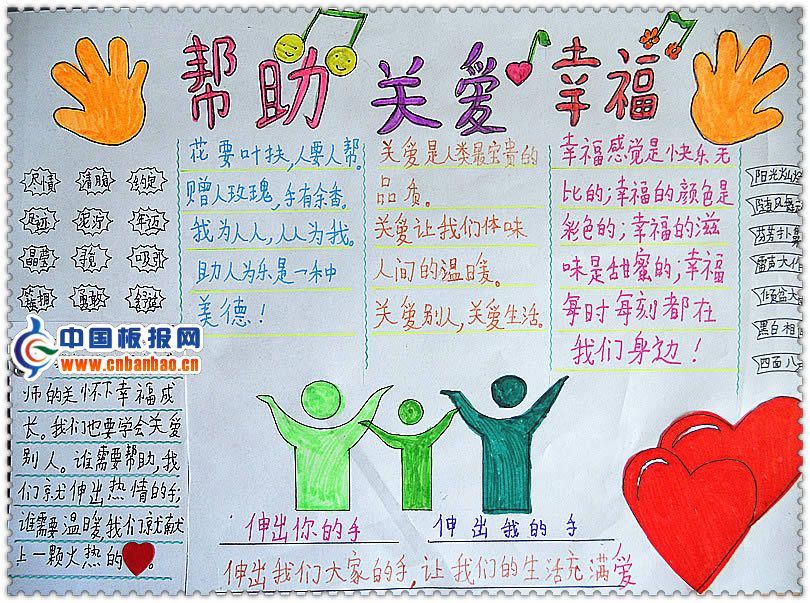 帮助 关爱 幸福
花要叶扶,人要人帮。
赠人玫瑰,手有余香。
我为人人,人人为我。
助人为乐是一种
美德!
关爱是人类最宝贵的
品质。
关爱让我们体味
人间的温暖。
关爱别人,关爱生活。
幸福感觉是快乐无
比的;幸福的颜色是
彩色的;幸福的滋
味是甜蜜的;幸福
每时每刻都在
我们身边!
尽责 清脆 约定
足迹 泥泞 年迈
晶莹 寻觅 吸引
勇敢
中国板报网
www.cnbanbao.cn
师的关怀下幸福成
长。我们也要学会关爱
别人。谁需要帮助,我
们就伸出热情的手;
谁需要温暖,我们就献
上一颗火热的。
雷声大作
倾盆大
黑白相
四面八
伸出你的手 伸出我的手
伸出我们大家的手,让我们的生活充满爱